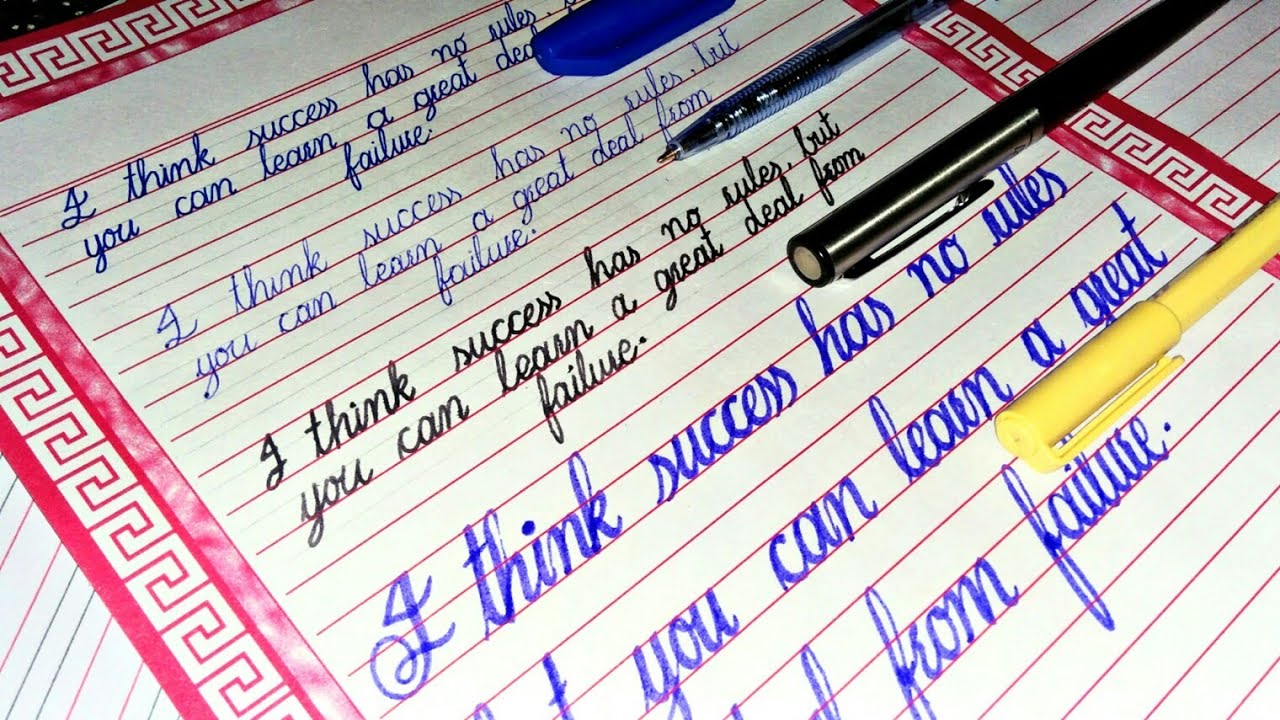 I think success has no rules,
you can learn a great deal
failure.
I think success has no rules, but
you can learn a great deal from
failure.
I think success has no rules, but
you can learn a great deal from
failure.
I think success has no rules
you can learn a great
from failure.